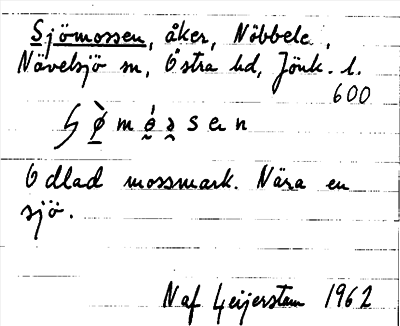 Sjömossen, åker, Nöbbele,
Nävelsjö sn, Östra hd, Jönk. l.
600
Odlad mossmark. Nära en
sjö.
N af Geijerstam 1962